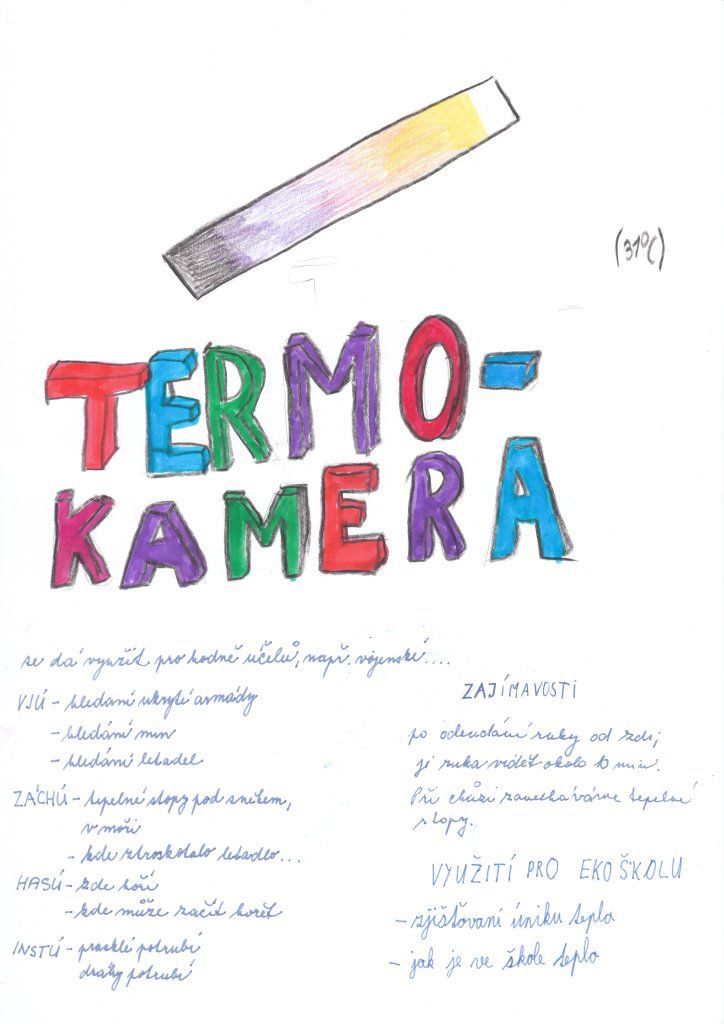 (31°C)
TERMO-
KAMERA
se dá využít pro hodně účelů, např. vojenské....
VJÚ - hledaní ukryté armády
- hledání min
- hledání letadel
ZÁCHÚ - tepelné stopy pod sněhem,
v moři
- kde ztroskotalo letadlo...
HASÚ - kde hoří
- kde může začít hořet
INSTÚ - prasklé potrubí
dráhy potrubí
ZAJÍMAVOSTI
po odendání ruky od zdi,
je ruka vidět okolo 10 min.
Při chůzi zanecháváme tepelné
stopy.
VYUŽITÍ PRO EKOŠKOLU
- zjišťovaní úniku tepla
- jak je ve škole teplo